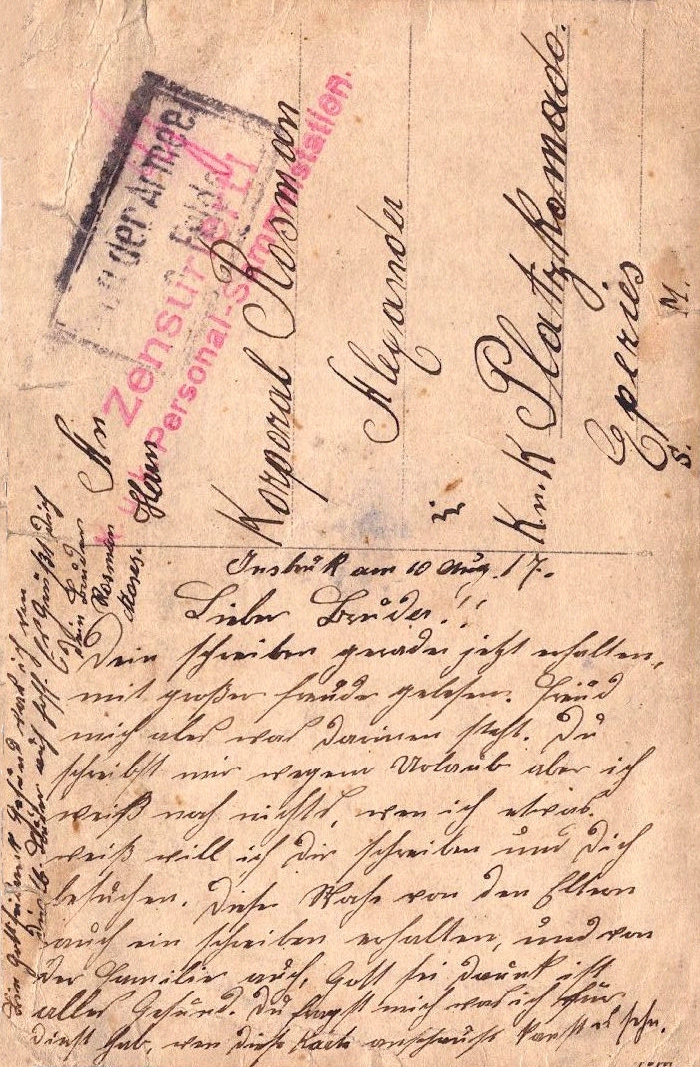 der Armee
Feld
Zensuriert
Personal-Sammelstation.
An
Herrn
Korporal Rosman
Alexander
in
K.u.K Platzkomado.
Eperies
S. M.
Insbruk am 10 Aug. 17.
Lieber Bruder!!
Dein schreiben gerade jetzt erhalten,
mit großer freude gelesen. Freud
mich ales was darinen steht. Du
schreibst mir wegem Urlaub aber ich
weiß noch nichts, wen ich etwas
weiß will ich dir schreiben und Dich
besuchen. Diese Woche von den Eltern
auch ein schreiben erhalten, und von
der Familie auch, Gott sei dank ist
alles Gesund. Du fragst mich was ich für
dinst hab, wen diese Karte anschaust kanst es sehn.
Bin Gottseidank Gesund was ich von
dir l. Bruder auch hoffe. Es Grüßt dich
dein Bruder
Rosman
Moses.